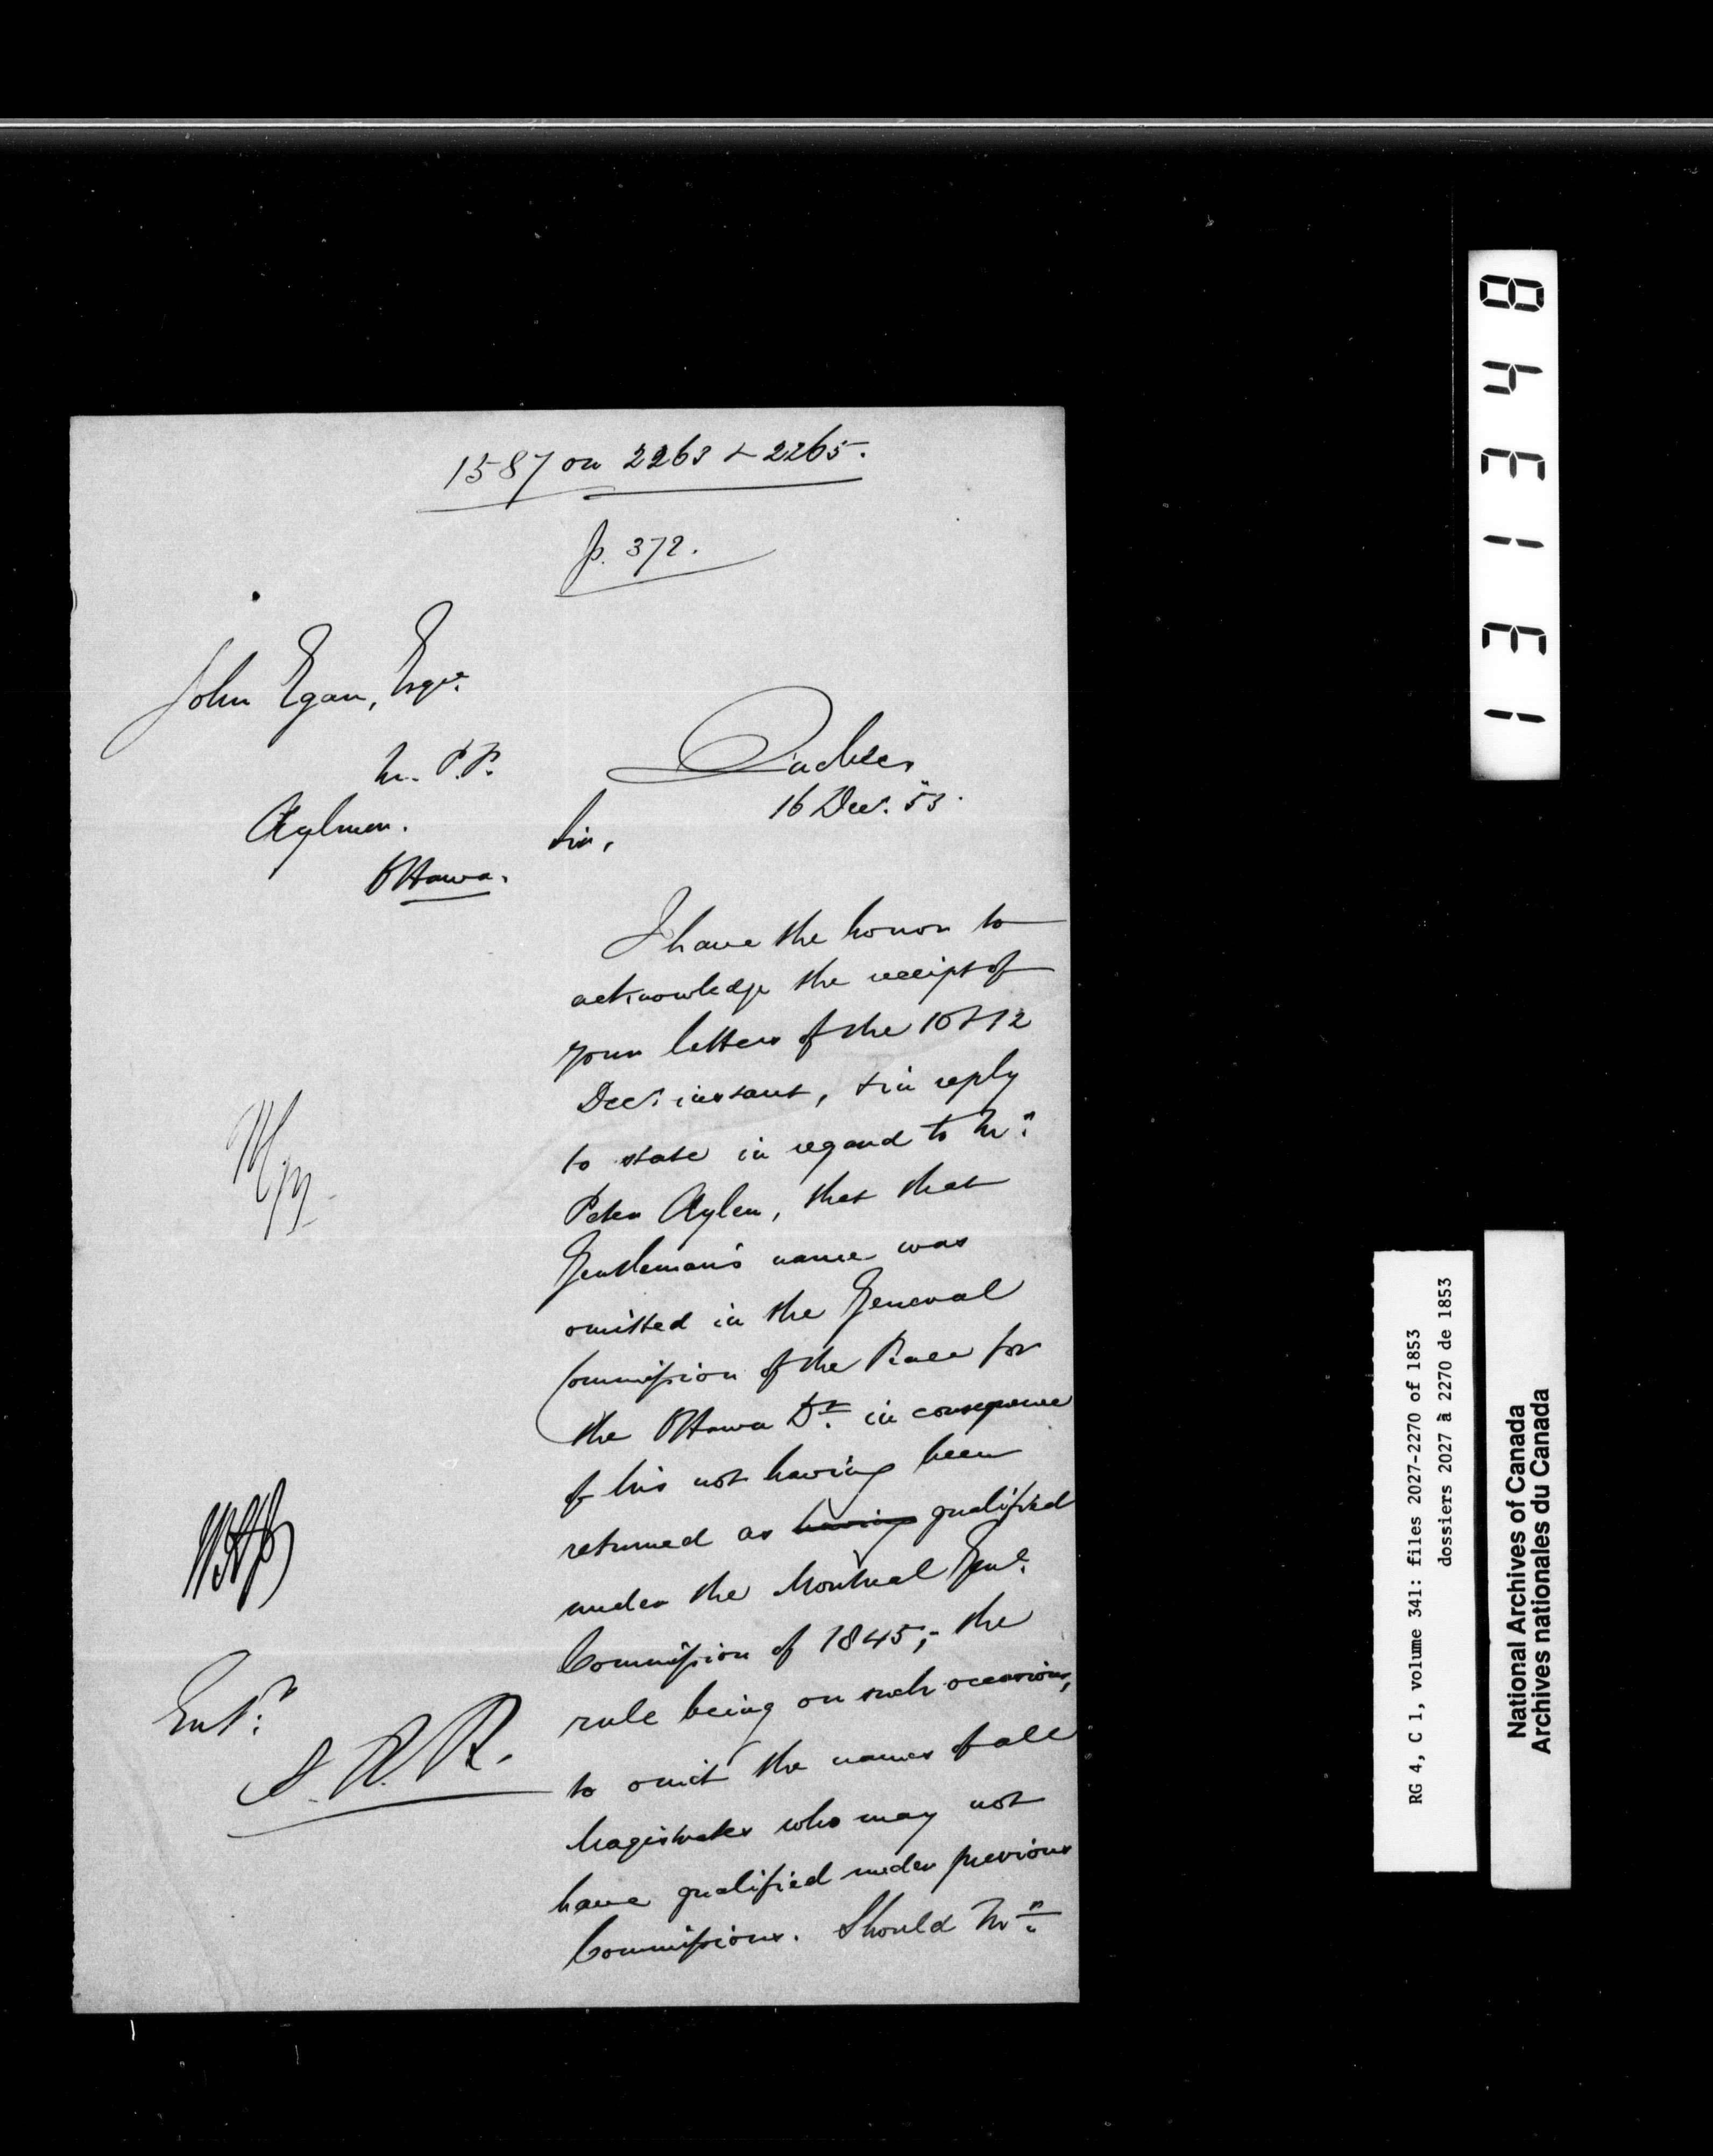 1587 on 2263 & 2265.
p. 372.
John Egan, Esqre.
M. P.P.
Aylmer.
Ottawa.
Quebec
16 Decr. 53.
Sir,
I have the honor to
acknowledge the receipt of
your letters of the 10 & 12
Decr. instant, & in reply
to state in regard to Mr.
Peter Aylen, that that
Gentleman's name was
omitted in the General
Commission of the Peace for
the Ottawa Dt. in consequence
of his not having been
returned as having qualified
under the Montreal Genl.
Commission of 1845;- the
rule being on such occasions,
to omit the names of all
Magistrates who may not
have qualified under previous
Commissions. Should Mr.
Entd.
A. R. R.
131348
RG 4, C 1, volume 341: files 2027-2270 of 1853
dossiers 2027 à 2270 de 1853
National Archives of Canada
Archives nationales du Canada